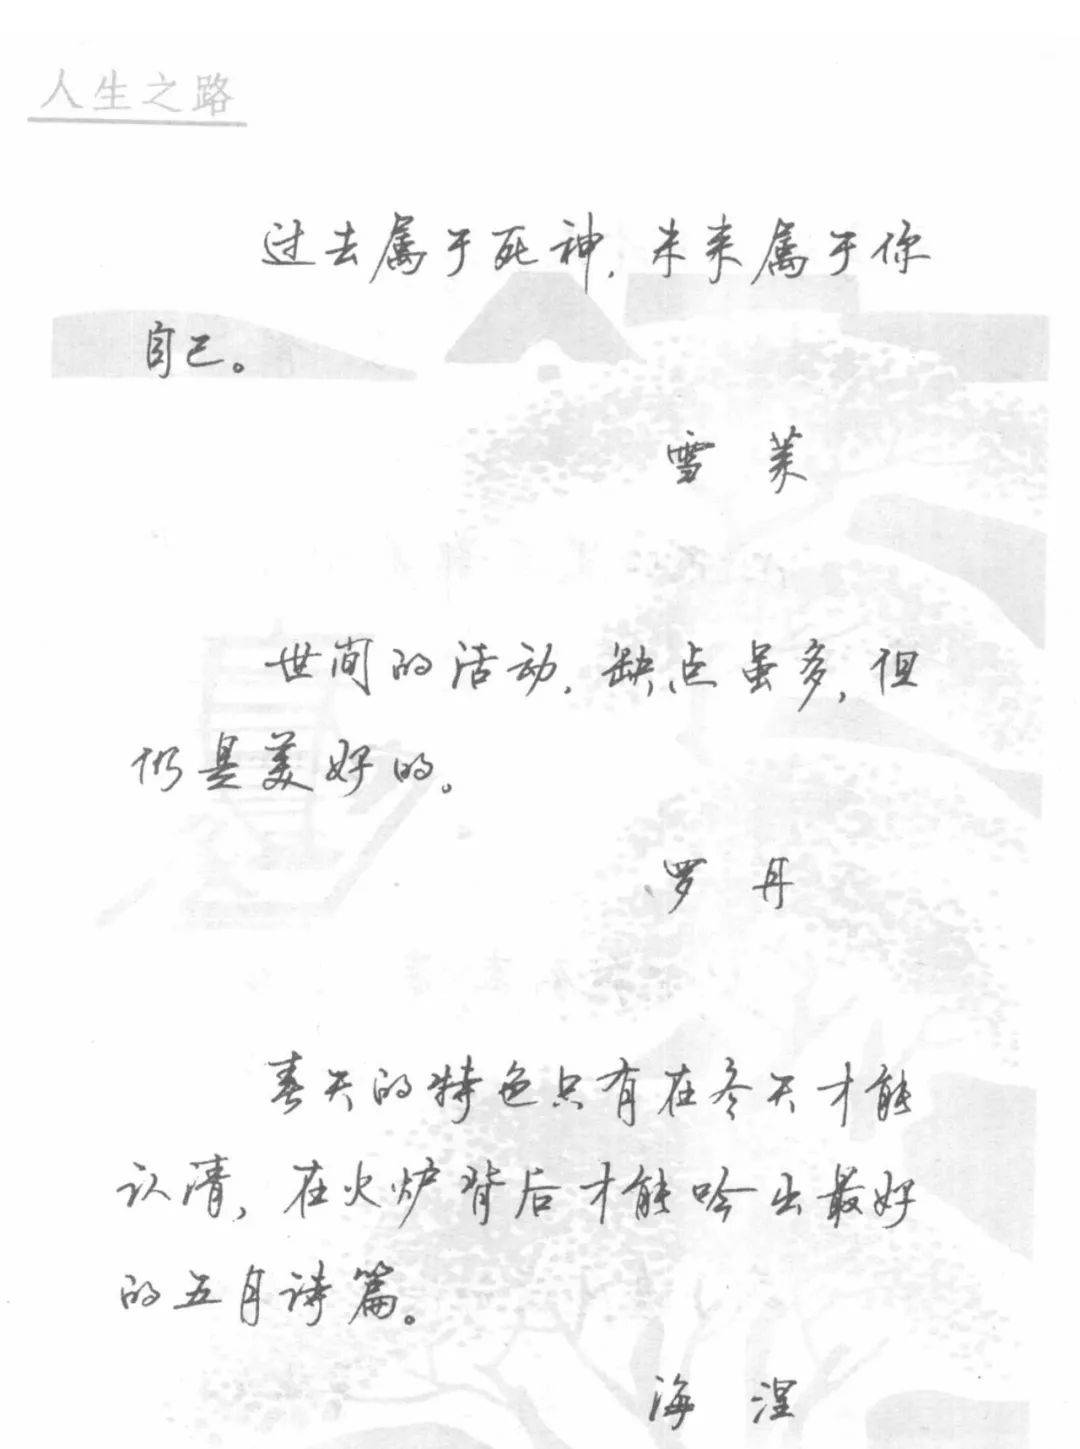 人生之路
过去属于死神，未来属于你
自己。
雪莱
世间的活动，缺点虽多，但
仍是美好的。
罗丹
春天的特色只有在冬天才能
认清，在火炉背后才能吟出最好
的五月诗篇。
海涅